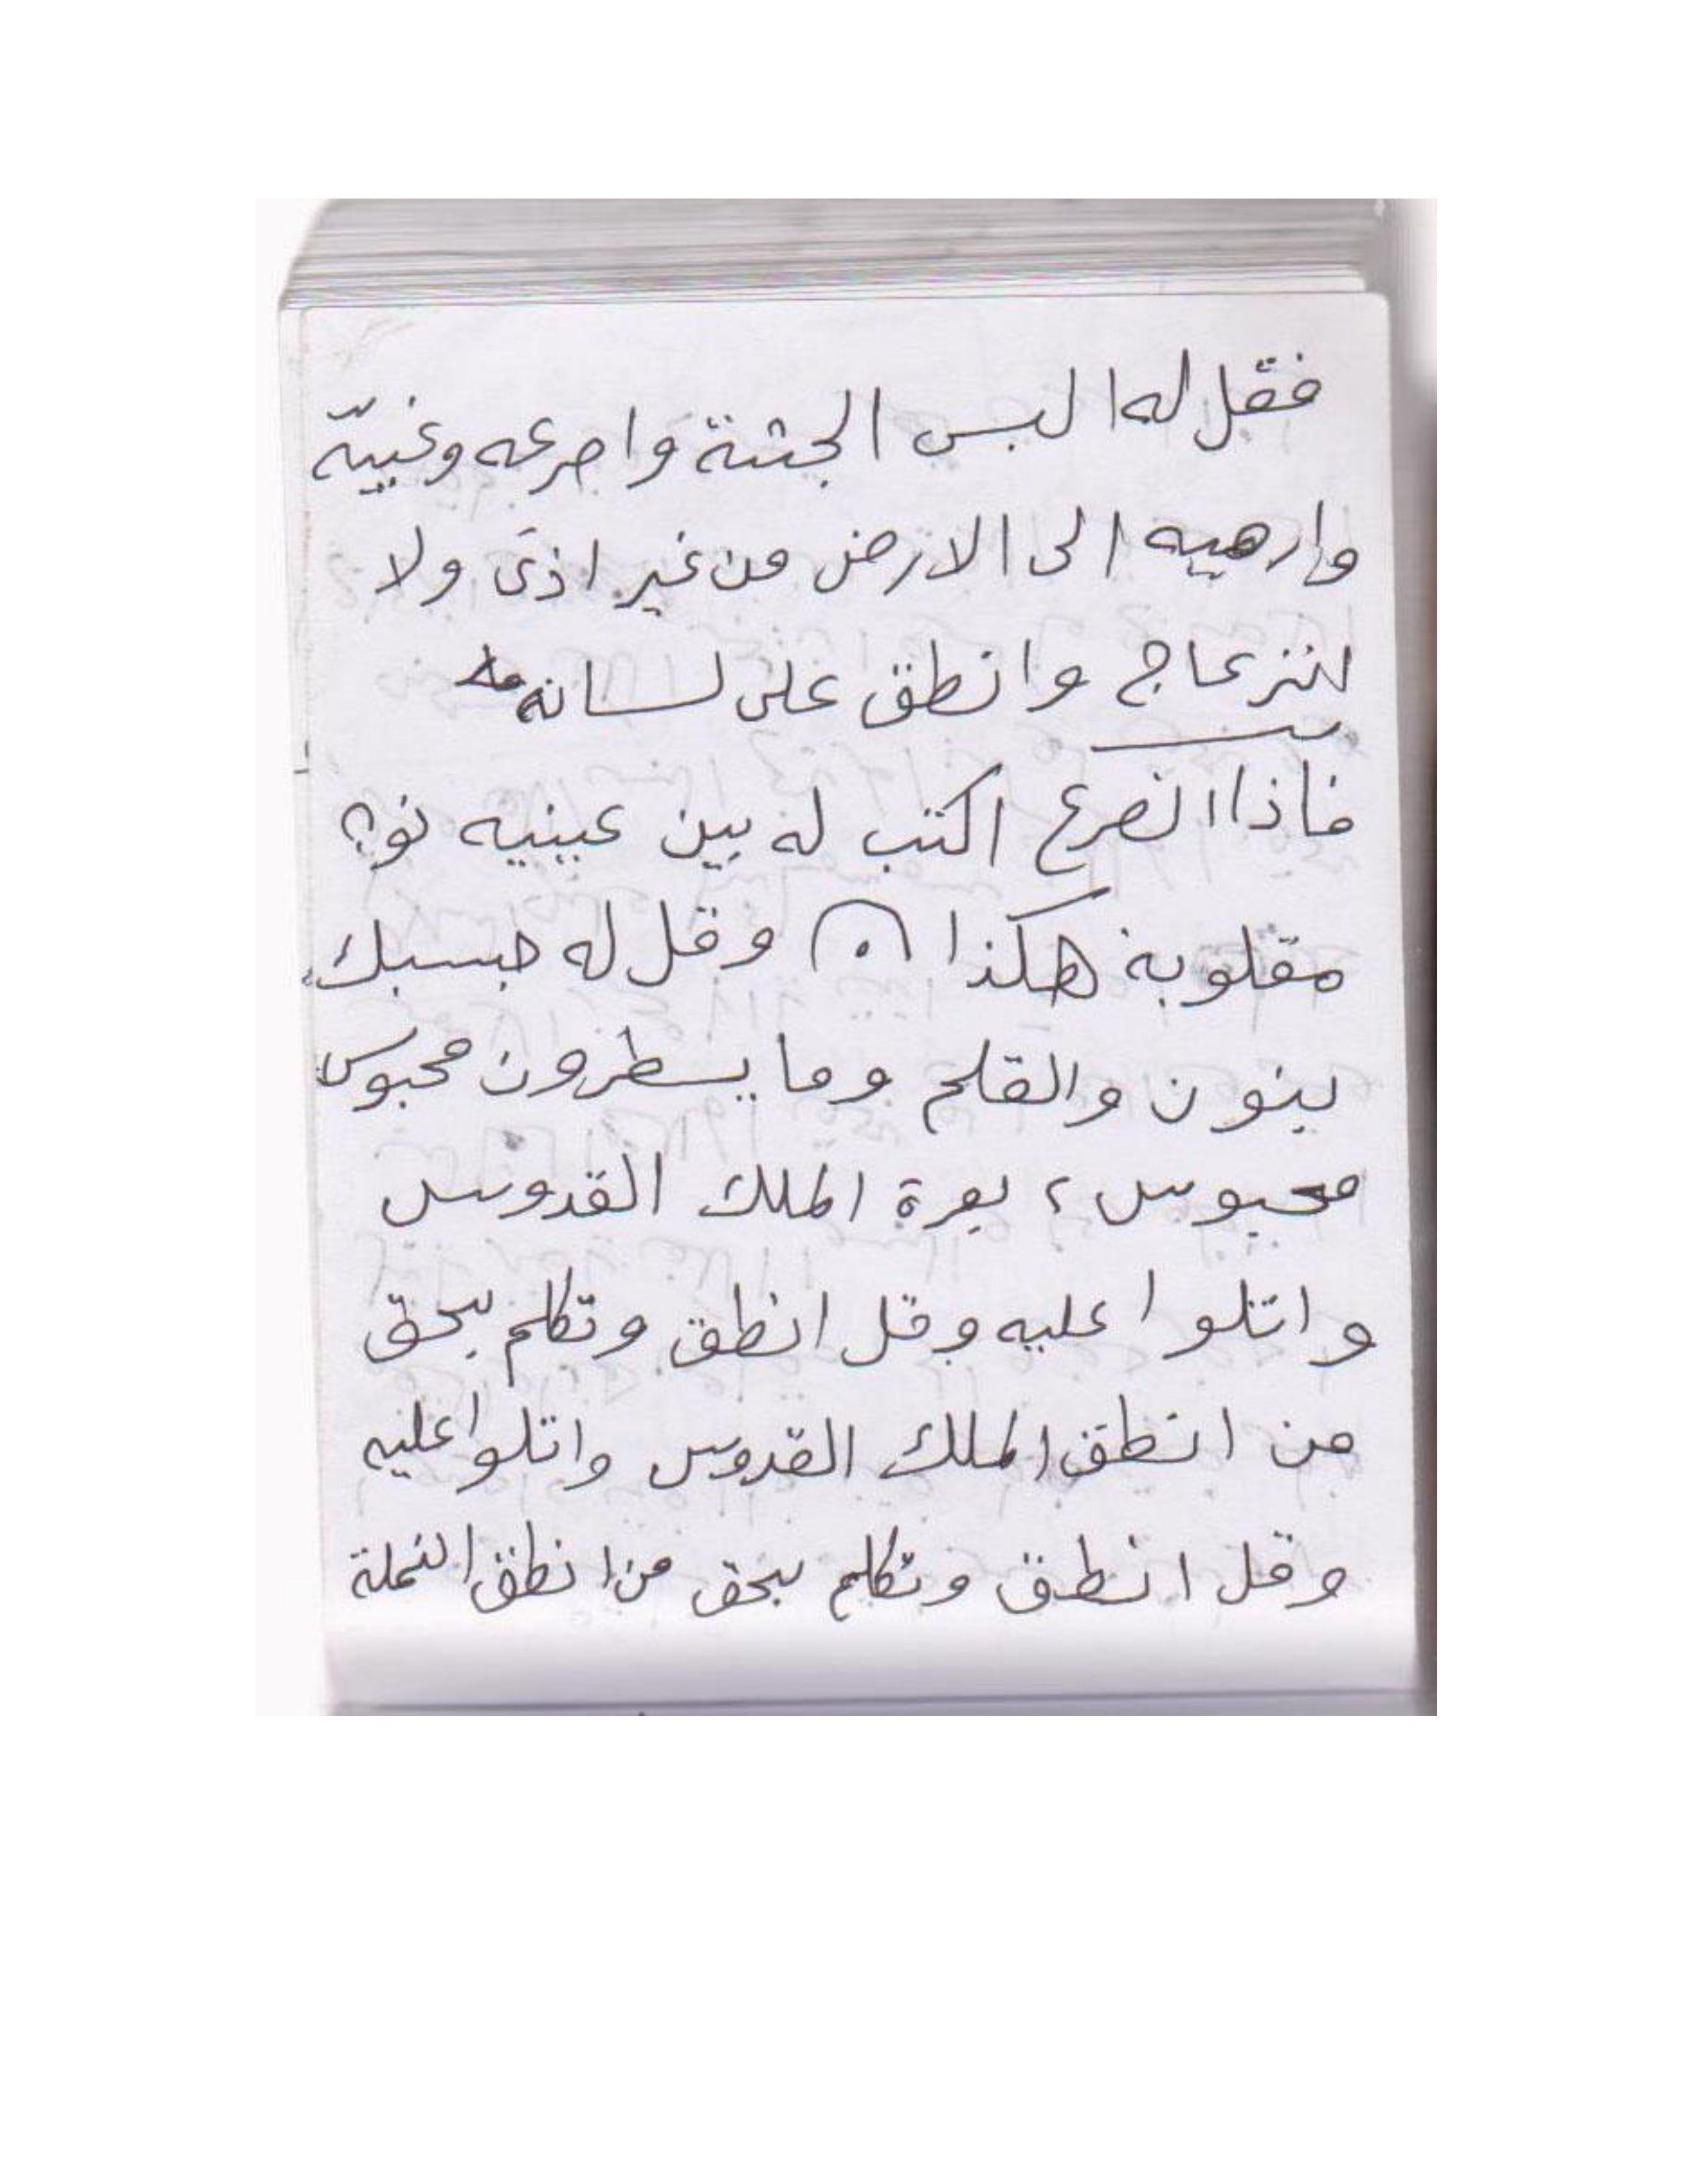 فقل له البس الجثة واصرعه وغيبه
وارميه الى الارض من غير اذى ولا
انزعاج وانطق على لسانه
فاذا انصرع اكتب له بين عينيه نون
مقلوبة هكذا وقل له حبستك
بنون والقلم وما يسطرون محبوس
محبوس ، بعزة الملك القدوس
واتلوا عليه وقل انطق وتكلم بحق
من انطق الملك القدوس واتلوا عليه
وقل انطق وتكلم بحق من انطق النملة